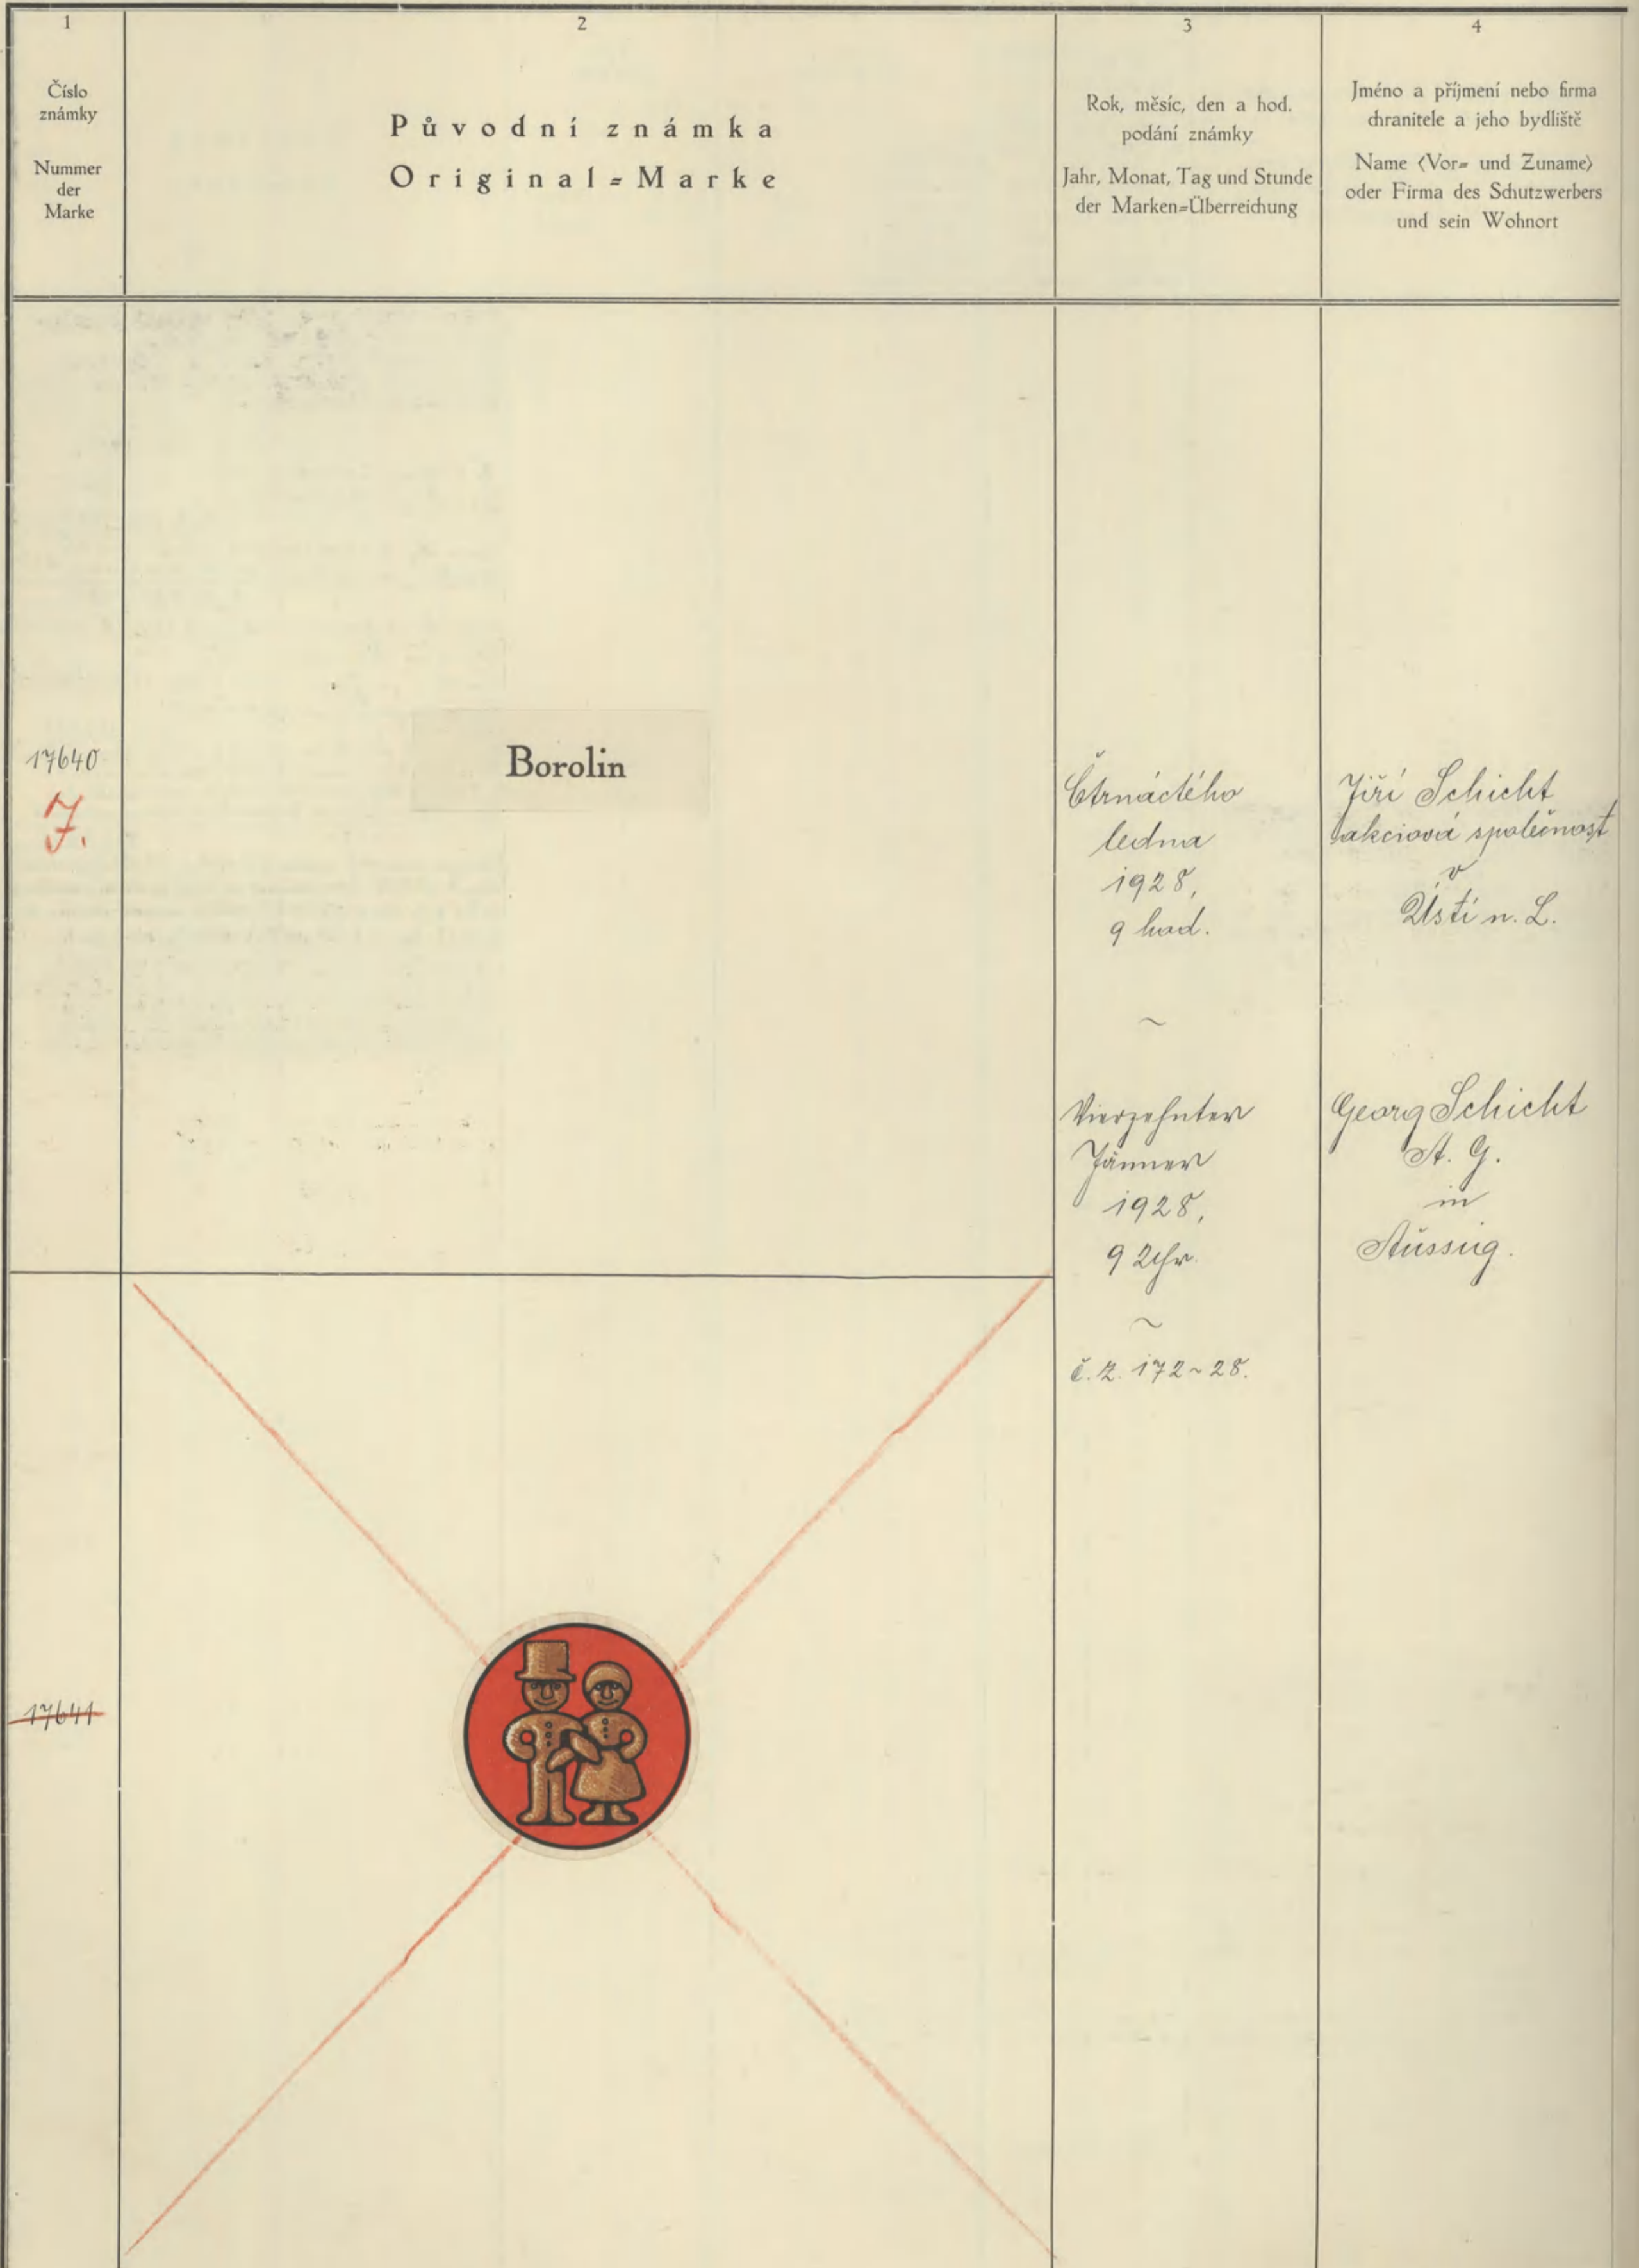 1
Číslo
známky
Nummer
der
Marke
2
Původní známka
Original=Marke
3
Rok, měsíc, den a hod.
podání známky
Jahr, Monat, Tag und Stunde
der Marken=Überreichung
4
Jméno a příjmení nebo firma
chranitele a jeho bydliště
Name (Vor= und Zuname)
oder Firma des Schutzwerbers
und sein Wohnort
17640
J.
Borolin
Čtrnáctého
ledna
1928,
9 hod.
~
Vierzehnter
Jänner
1928,
9 Uhr.
~
č.z. 172~28.
Jiří Schicht
akciová společnost
v
Ústí n. L.
Georg Schicht
A. G.
in
Aussig.
17641